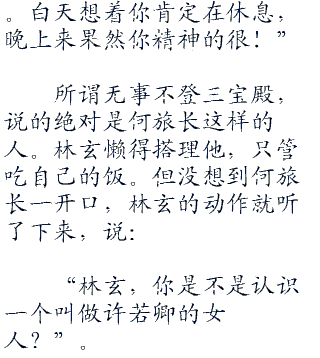 。白天想着你肯定在休息，
晚上来果然你精神的很！”
所谓无事不登三宝殿，
说的绝对是何旅长这样的
人。林玄懒得搭理他，只管
吃自己的饭。但没想到何旅
长一开口，林玄的动作就听
了下来，说：
“林玄，你是不是认识
一个叫做许若卿的女
人？”。